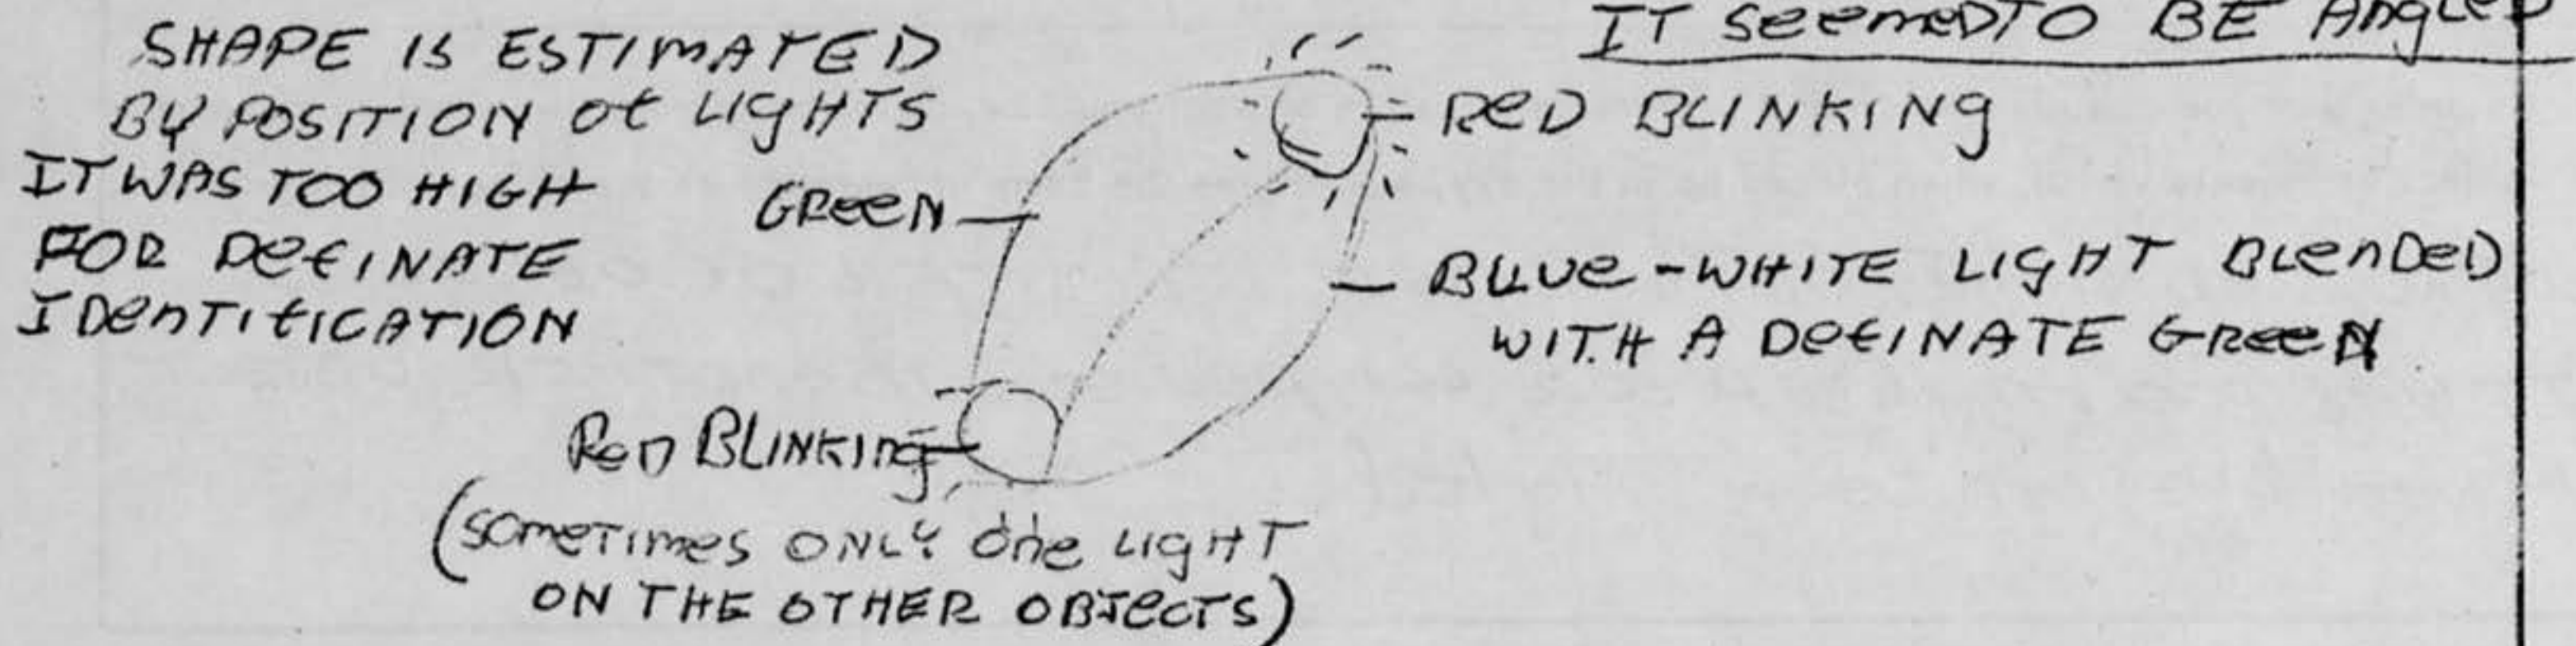 SHAPE IS ESTIMATED
BY POSITION Of LIgHTS
IT WAS TOO HIGH
FOR DefINATE
IDenTIfICATION
IT SeemeD TO BE AngLeD
ReD BLINKINg
GReeN
BLUe-WHITE LIgHT BLenDeD
WITH A DefINATE GReeN
ReD BLINKIng
(SOmeTImes ONLY One LIgHT
ON THE OTHER OBJecTS)